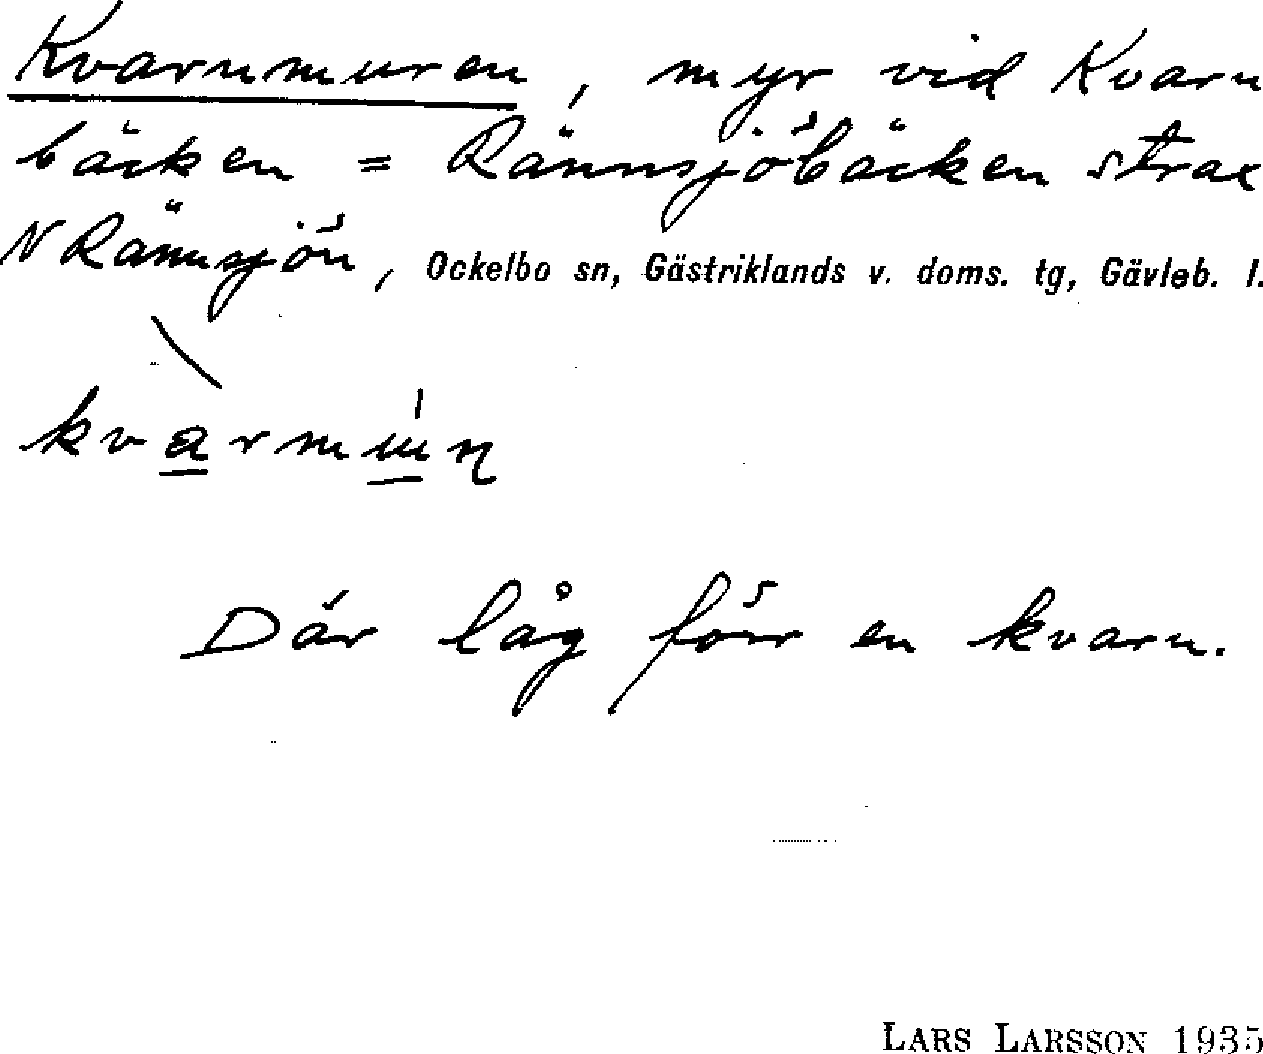 Kvarnmuren, myr vid Kvarn
bäcken = Rännsjöbäcken strax
N Rännsjön, Ockelbo sn, Gästriklands v. doms. tg, Gävleb. l.
Där låg förr en kvarn.
LARS LARSSON 1935